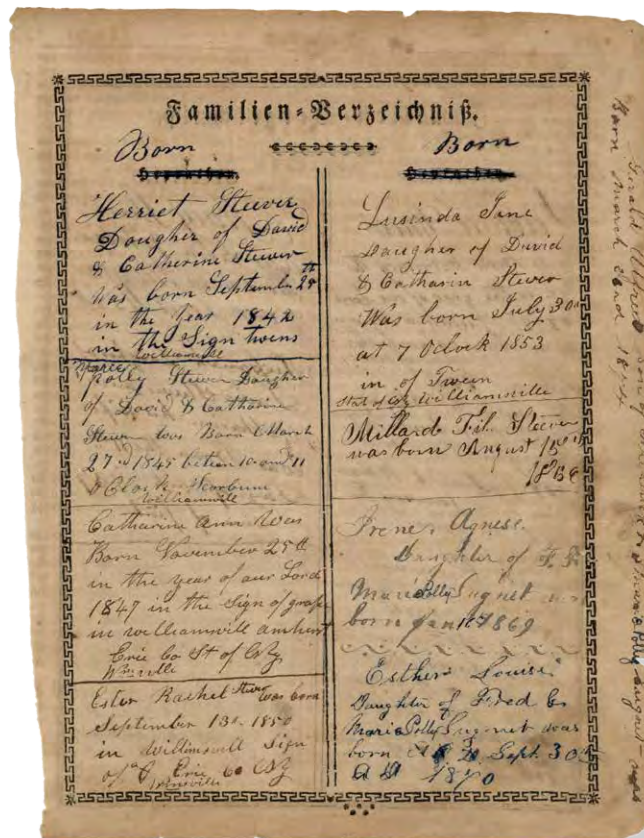 Familien-Verzeichniß.
Born
Herriet Stever
Daugher of David
& Catherine Stever
was born September 28th
in the year 1842
in the Sign twens
Williamsvill
Maree
Polly Stever Daugher
of David & Catharine
Stever was Born March
27d 1845 between 10 and 11
o Clock
Williamvill
Catharine Ann Was
Born November 25th
in the year of our Lord
1847 in the Sign of
in williamvill amherst
Erie Co St of NY
Wmsville
Ester Rachel Stever was born
September 13th 1850
in Willimsvill Sign
of Erie Co NY
Born
Lusinda Jane
Daugher of David
& Catharin Stever
Was born July 30th
at 7 Oclock 1853
in of Tween
Stat of NY Williamsville
Millard Fil. Stever
was born August 15th
Irene Agnese.
Daughter of F.
Marie Polly Sugnet was
born Jan 1869
Esther Louise
Daughter of Fred &
Marie Polly Sugnet was
born Sept. 30th
A D 1870
Born March 1874